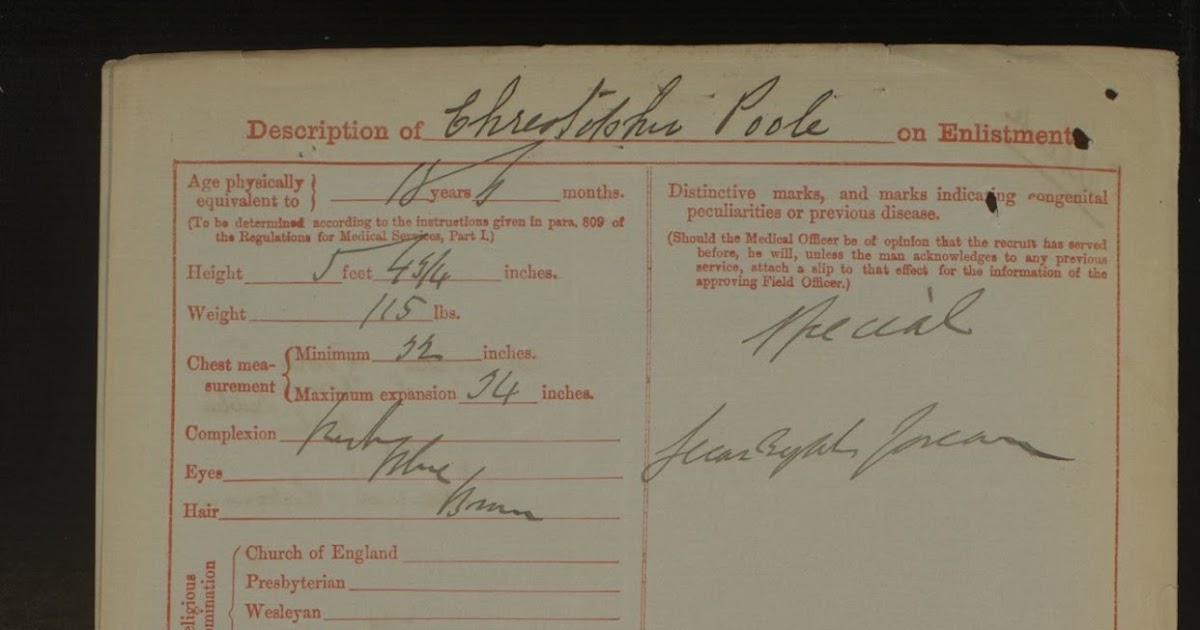 Description of Christopher Poole on Enlistment
Age physically equivalent to } 18 years months.
(To be determined according to the instructions given in para. 809 of
the Regulations for Medical Services, Part I.)
Height 5 feet 4 3/4 inches.
Weight 115 lbs.
Chest mea-
surement
Minimum 32 inches.
Maximum expansion 34 inches.
Complexion
Eyes Blue
Hair Brown
Church of England
Presbyterian
Wesleyan
Distinctive marks, and marks indicating congenital
peculiarities or previous disease.
(Should the Medical Officer be of opinion that the recruit has served
before, he will, unless the man acknowledges to any previous
service, attach a slip to that effect for the information of the
approving Field Officer.)
Special
Scar Right Forearm